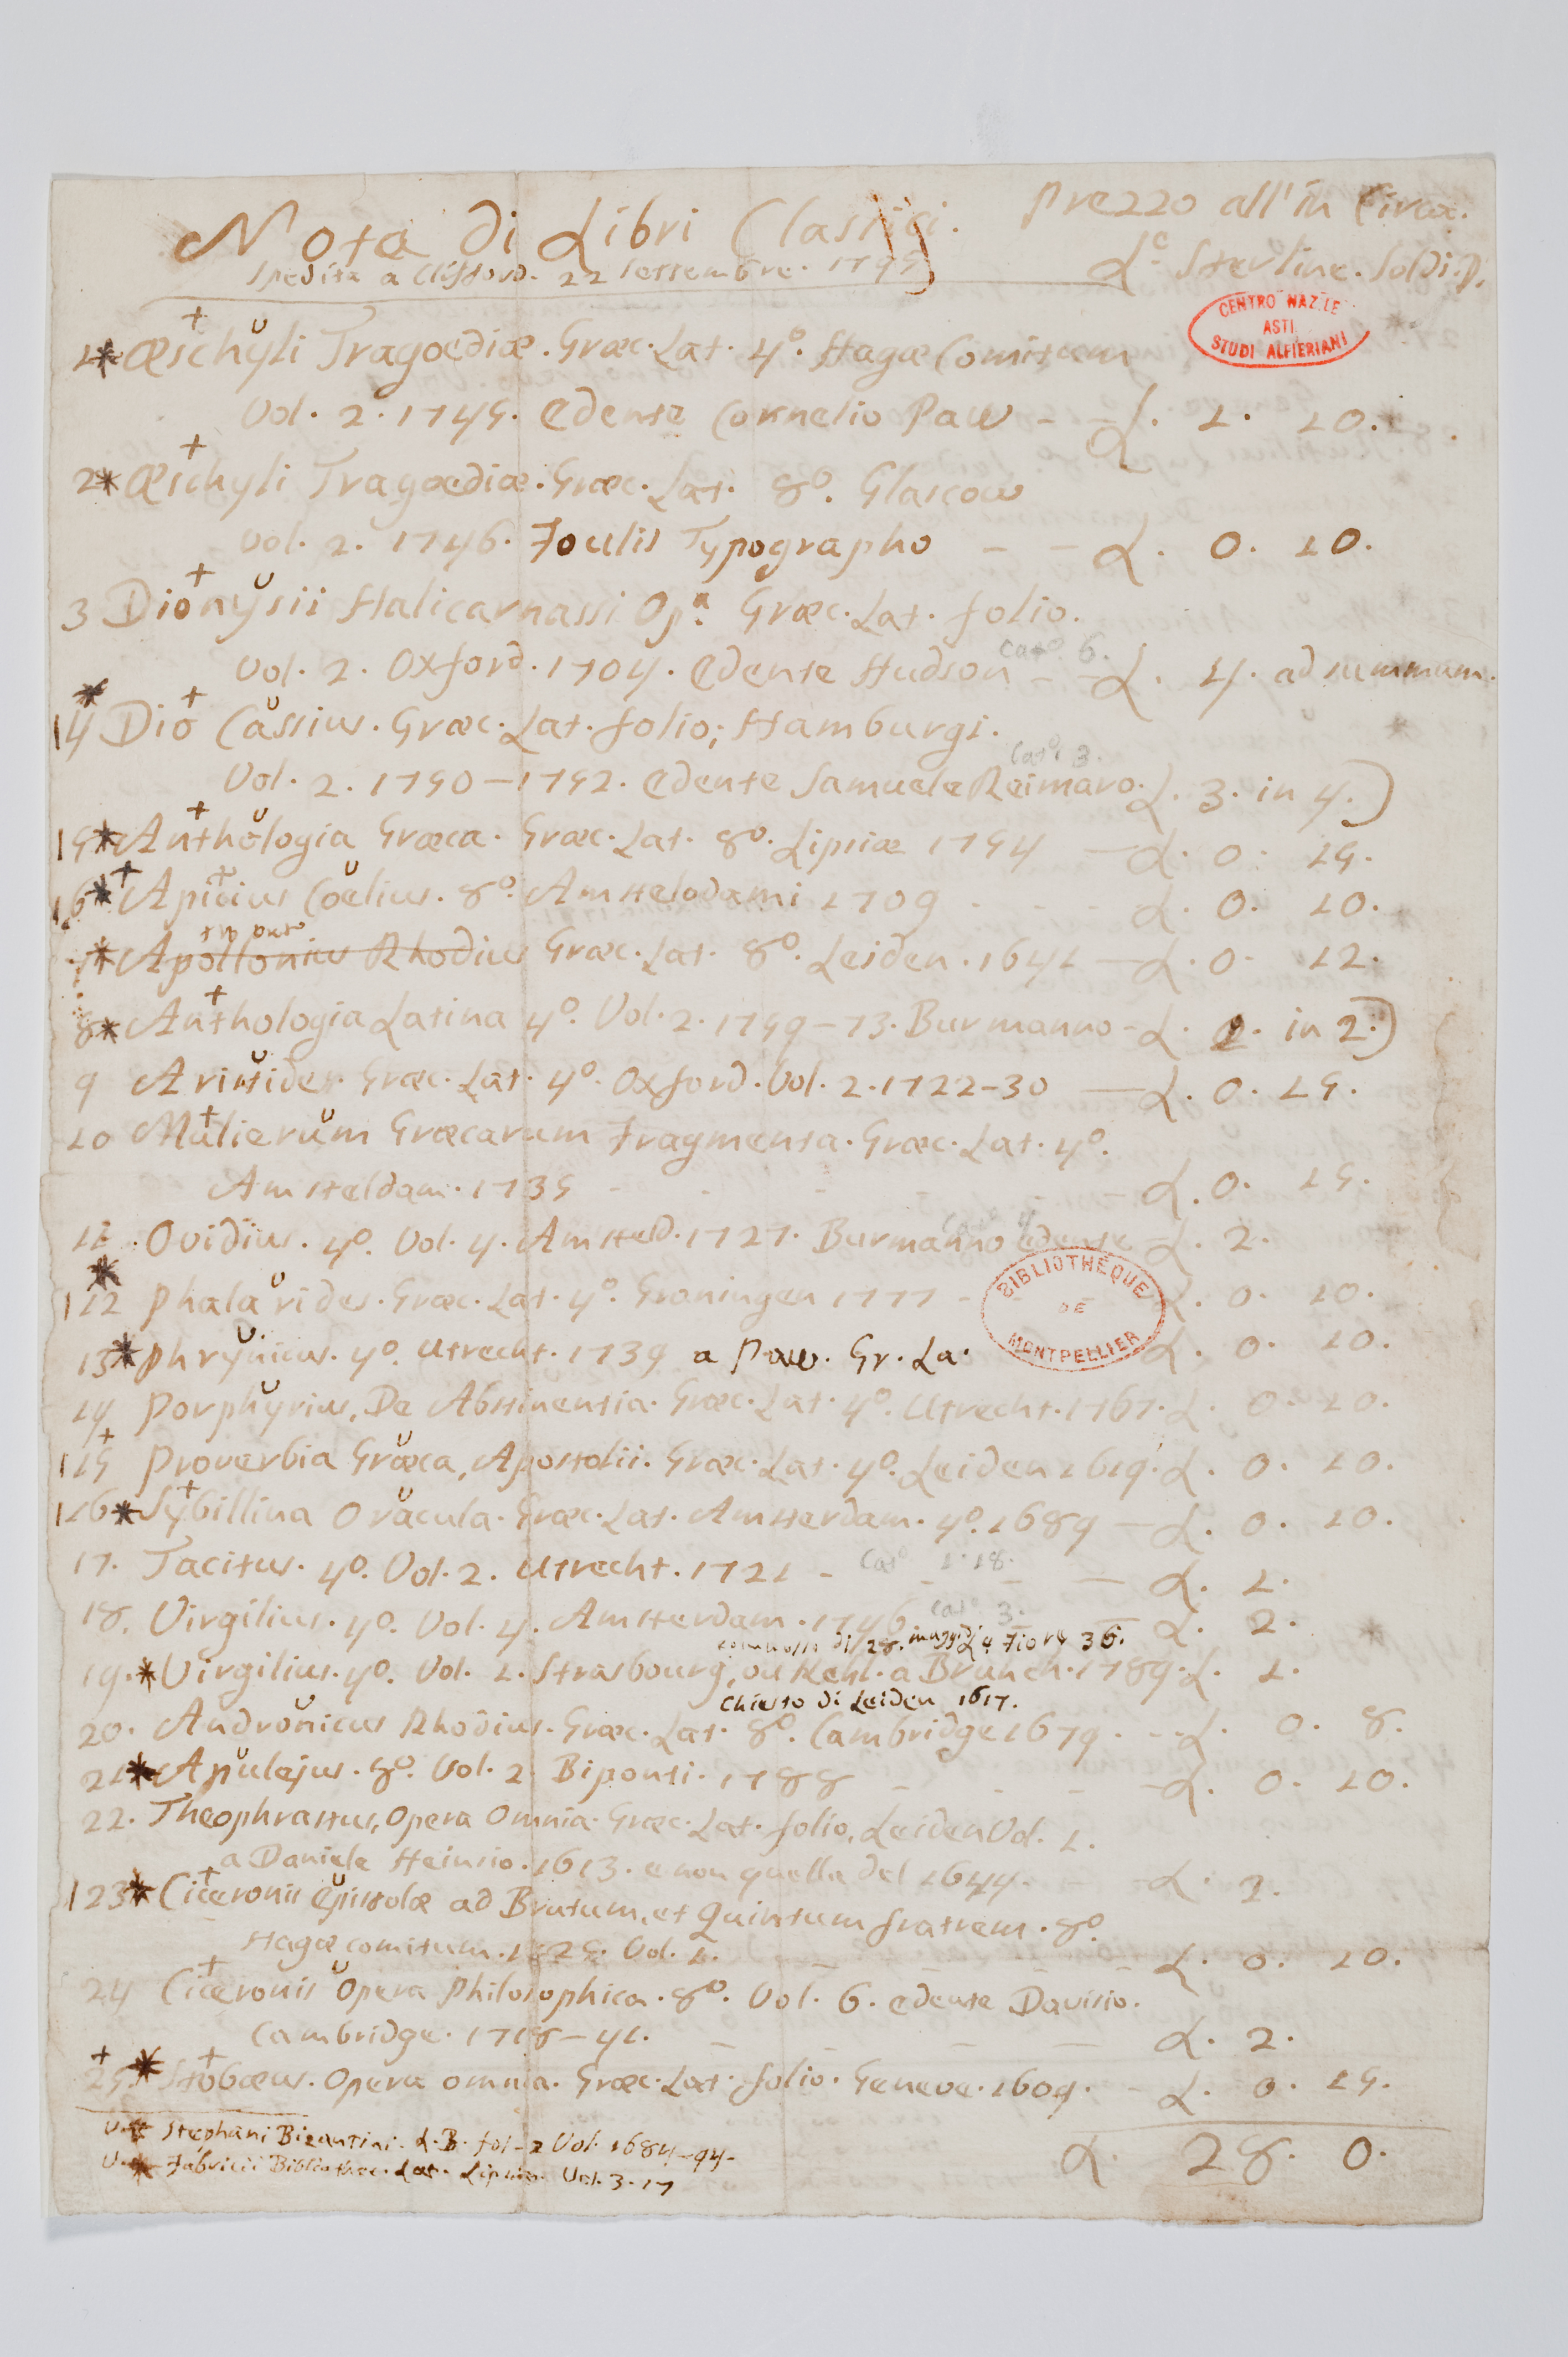 Nota di Libri Classici. Prezzo all'in Circa.
Spedita a Clifford. 22 Settembre. 1795 L.e Sterline. Soldi. D.
CENTRO NAZ.LE
ASTI
STUDI ALFIERIANI
1* Æschyli Tragoediæ. Græc. Lat. 4º. Hagæ Comitum
Vol. 2. 1745. Edente Cornelio Paw - - L. 1. 10.
2* Æschyli Tragoediæ. Græc. Lat. 8º. Glascow
Vol. 2. 1746. Foulis Typographo - - L. 0. 10.
3 Dionysii Halicarnassi Opª. Græc. Lat. folio.
Vol. 2. Oxford. 1704. Edente Hudson Catº. 6. - - L. 4. ad summum.
4 Dio Cassius. Græc. Lat. folio; Hamburgi.
Vol. 2. 1750-1752. Edente Samuele Reimaro. Catº. 3. L. 3. in 4.)
5* Anthologia Græca. Græc. Lat. 8º. Lipsiæ 1754 - L. 0. 15.
6* Apicius Coelius. 8º. Amstelodami 1709 - - - L. 0. 10.
7* Apollonius Rhodius Græc. Lat. 8º. Leiden. 1641 - L. 0. 12.
8* Anthologia Latina 4º. Vol. 2. 1759-73. Burmanno - L. 1. in 2.)
9 Aristides. Græc. Lat. 4º. Oxford. Vol. 2. 1722-30 - L. 0. 15.
10 Mulierum Græcarum Fragmenta. Græc. Lat. 4º.
Amsteldam. 1735 - - - - L. 0. 15.
11 Ovidius. 4º. Vol. 4. Amsteld. 1727. Burmanno Edente L. 2.
BIBLIOTHÈQUE
DE
MONTPELLIER
12 Phalarides. Græc. Lat. 4º. Groningen 1777 - - L. 0. 10.
13* Phrynicus. 4º. Utrecht. 1739 a Paw. Gr. La. L. 0. 10.
14 Porphyrius, De Abstinentia. Græc. Lat. 4º. Utrecht. 1767. L. 0. 10.
15 Proverbia Græca, Apostolii. Græc. Lat. 4º. Leiden 1619. L. 0. 10.
16* Sybillina Oracula. Græc. Lat. Amsterdam. 4º. 1689 - L. 0. 10.
17. Tacitus. 4º. Vol. 2. Utrecht. 1721 - Catº 1.18. - - L. 1.
18. Virgilius. 4º. Vol. 4. Amsterdam. 1746 Catº 3. L. 2.
19.* Virgilius. 4º. Vol. 1. Strasbourg, ou Kehl. a Brunch. 1789. L. 1.
Chiesto di Leiden 1617.
20. Andronicus Rhodius. Græc. Lat. 8º. Cambridge 1679. - - L. 0. 8.
21* Apulejus. 8º. Vol. 2 Biponti. 1788 - - - L. 0. 10.
22. Theophrastus, Opera Omnia. Græc. Lat. folio, Leiden Vol. 1.
a Daniele Heinsio. 1613. e non quella del 1644. - - L. 3.
23* Ciceronis Epistolæ ad Brutum, et Quintum fratrem. 8º.
Hagæ comitum. 1725. Vol. 1. - - - - L. 0. 10.
24 Ciceronis Opera Philosophica. 8º. Vol. 6. edente Davisio.
Cambridge. 1718-41. - - - - L. 2.
25* Stobæus. Opera omnia. Græc. Lat. folio. Geneve. 1609. - L. 0. 15.
Stephani Bizantini. L. B. fol - 2 Vol. 1684-94- L. 28. 0.
Fabricii Bibliothec. Lat. Lipsiæ. Vol. 3.